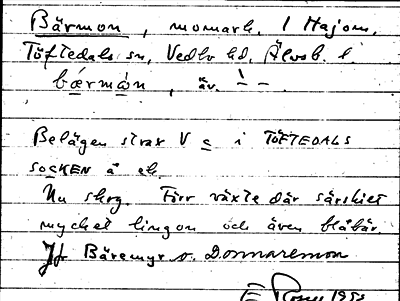 Bärmon, momark, 1 Hajom,
Töftedals sn, Vedbo hd, Älvsb. l
bærmòn, kv.
Belägen strax V c i TÖFTEDALS
SOCKEN å ek.
Nu skog. Förr växte där särskilt
mycket lingon och även blåbär.
Jfr Bäremyr o. Donnaremon
E Rosu 1953